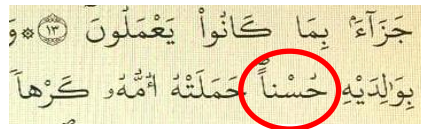 جَزَآءَۢ بِمَا كَانُواْ يَعْمَلُونَ ١٣ ۞ وَ
بِوَٰلِدَيْهِ حُسْناًۖ حَمَلَتْهُ أُمُّهُۥ كَرْهاً